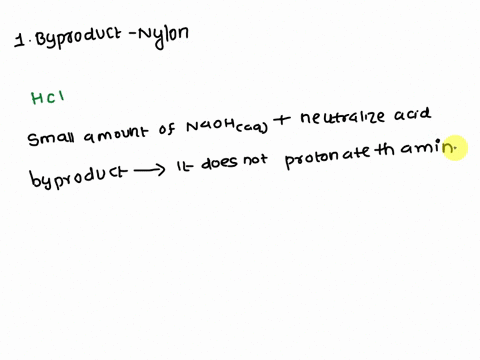 1. Byproduct - Nylon
HCl
Small amount of NaOH(aq) + neutralize acid
byproduct → It does not protonate th amin.